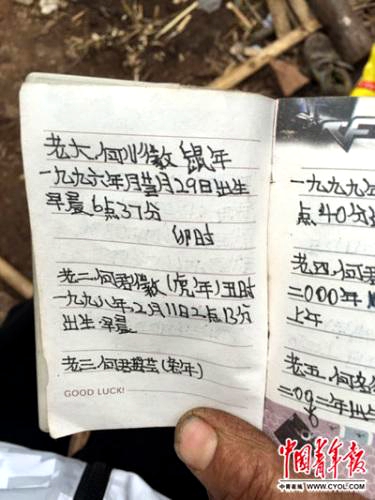 老大.何川微 鼠年
一九九六年月 月29日出生
早晨6点37分
卯时
老二.何君微(虎年)丑时
一九九八年2月11日2点13分
出生 早晨
老三.何君 兰(兔年)
GOOD LUCK!
一九九九年
点40分
老四.何君
二000年
上午
老五.何
二0 二年出
中国青年报
中青在线 WWW.CYOL.COM